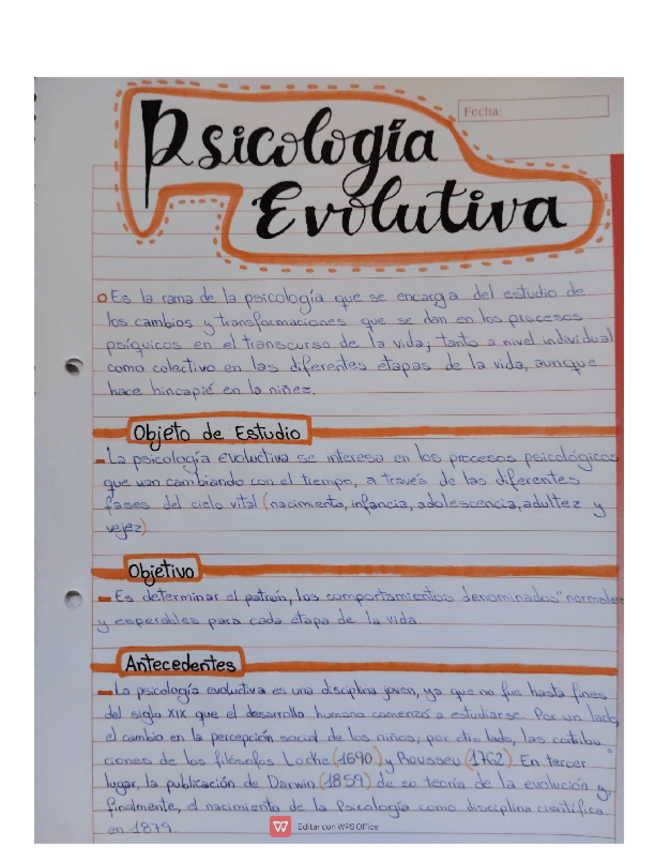 Fecha:
Psicología
Evolutiva
Es la rama de la psicología que se encarga del estudio de
los cambios y transformaciones que se dan en los procesos
psíquicos en el transcurso de la vida; tanto a nivel individual
como colectivo en las diferentes etapas de la vida, aunque
hace hincapié en la niñez.
Objeto de Estudio
- La psicología evoluctiva se interesa en los procesos psicológicos
que van cambiando con el tiempo, a través de las diferentes
fases del ciclo vital (nacimiento, infancia, adolescencia, adultez y
vejez).
Objetivo
- Es determinar el patrón, los comportamientos denominados "normales
y esperables para cada etapa de la vida.
Antecedentes
- La psicología evoluctiva es una disciplina joven, ya que no fue hasta fines
del siglo XIX que el desarrollo humano comenzó a estudiarse. Por un lado,
el cambio en la percepción social de los niños; por otro lado, las contribu
ciones de los filósofos Locke (1690) y Rousseu (1762). En tercer
lugar, la publicación de Darwin (1859) de su teoría de la evolución y,
finalmente, el nacimiento de la Psicología como disciplina científica
en 1879.
Editar con WPS Office